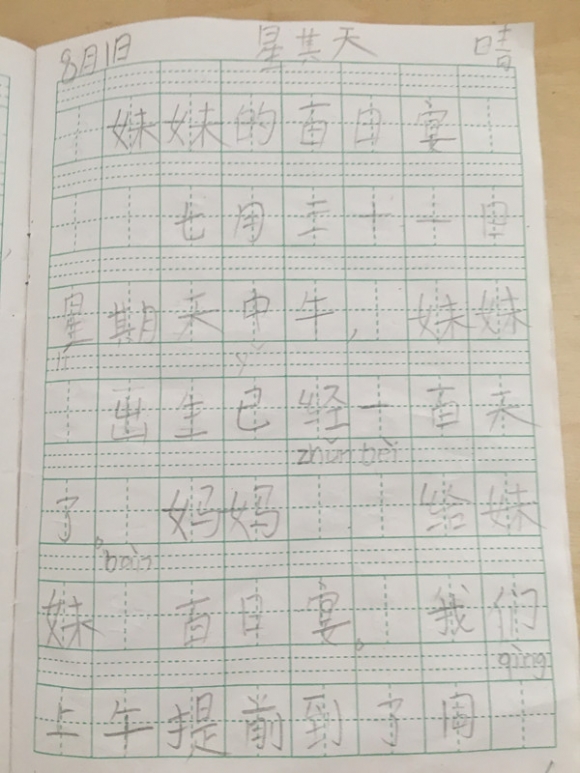 8月1日 星其天 晴
妹妹的百日宴
七月三十一日
星期天中午,妹妹
yǐ
出生已经一百天
zhǔn bèi
了。妈妈 给妹
bàn
妹 百日宴。我们
qìng
上午提前到了国